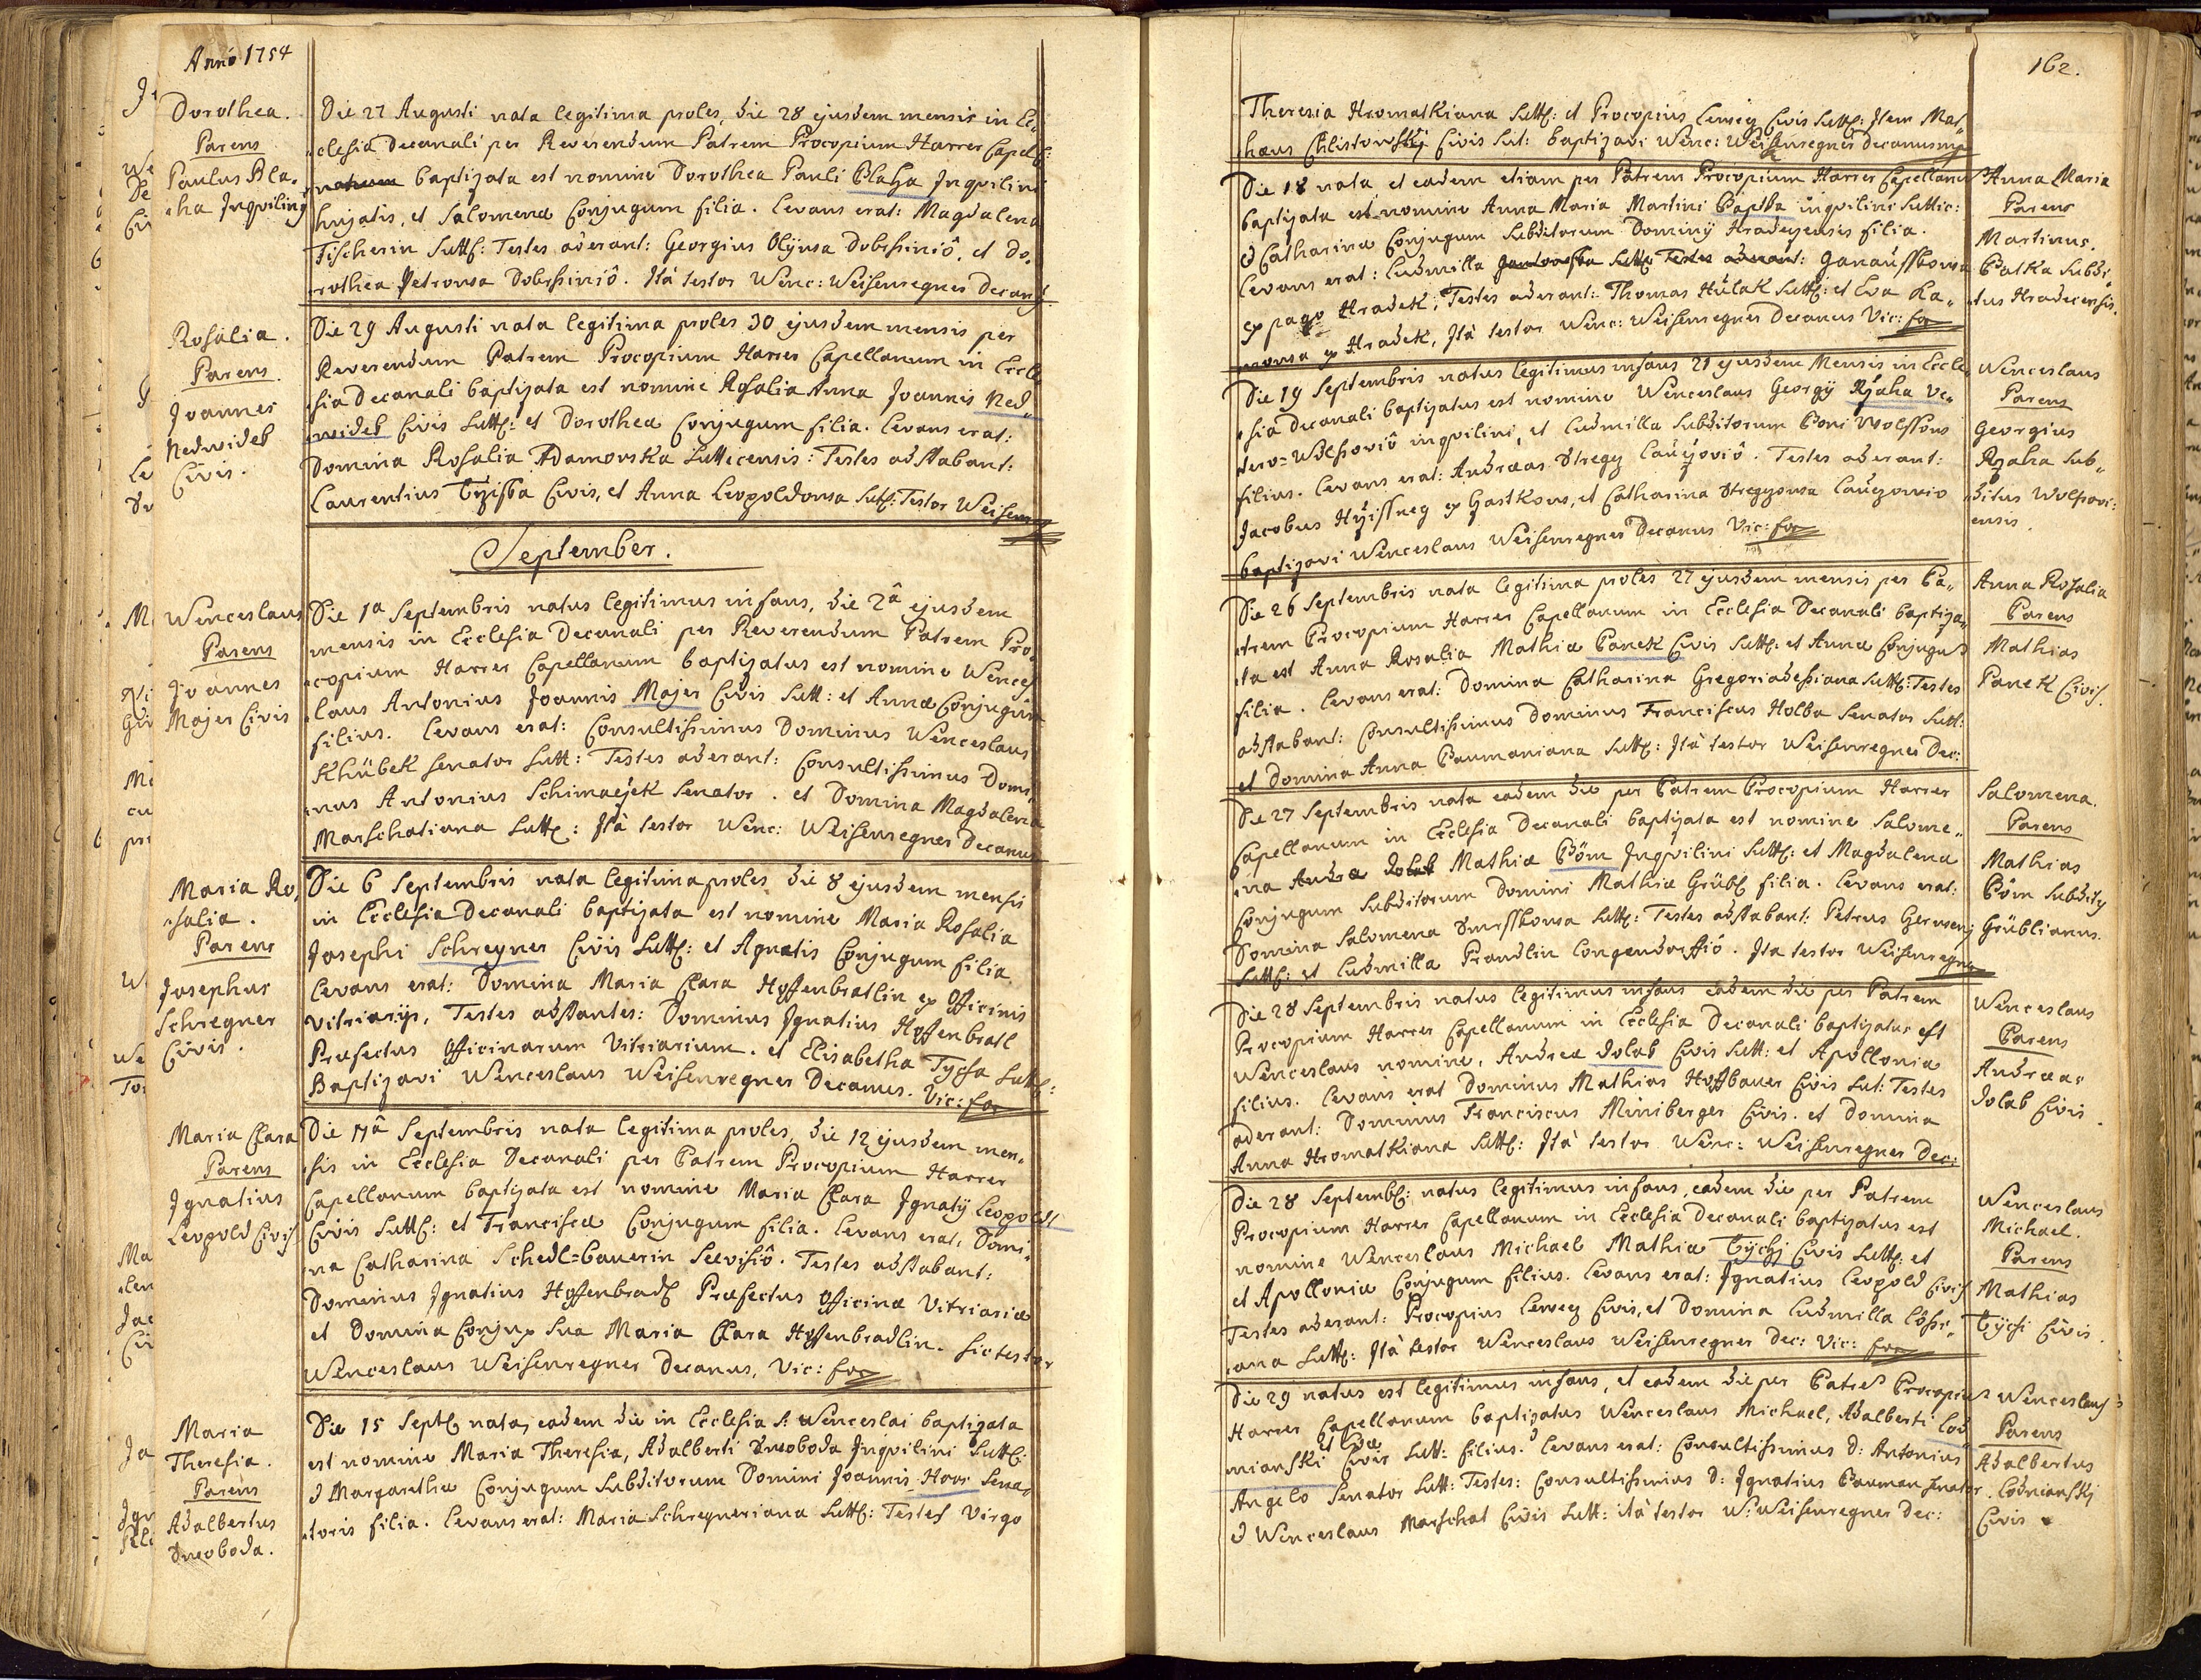 Anno 1754
Dorothea.
Parens
Paulus Bla„
cha Inqvilinq
Die 27 Augusti nata legitima proles, die 28 ejusdem mensis in Ec„
clesia Decanali per Reverendum Patrem Procopium Harrer Capell:
baptizata est nomine Dorothea Pauli Blaha Inqvilini
hujatis, et Salomenæ Conjugum filia. Levans erat: Magdalena
Fischerin Sutt: Testes aderant: Georgius Olÿnsa Dobrssiniô, et Do„
rothea Petronsa Dobrssiniô. Ità testor Wenc: Weisenregner Decang
Rosalia.
Parens
Joannes
Nedwideb
Civis.
Die 29 Augusti nata legitima proles 30 ejusdem mensis per
Reverendum Patrem Procopium Harrer Capellanum in Eccle
sia Decanali baptizata est nomine Rosalia Anna Joannis Ned„
wideb Civis Sutt: et Dorotheæ Conjugum filia. Levans erat:
Domina Rosalia Adamovska Sutticensis: Testes adstabant:
Laurentius Civis, et Anna Leopoldonsa Sut: Testor Weisenr
September.
Wenceslaus
Parens
Joannes
Majer Civis
Die 1a Septembris natus legitimus infans, die 2â ejusdem
mensis in Ecclesia Decanali per Reverendum Patrem Pro„
copium Harrer Capellanum baptizatus est nomine Wences„
laus Antonius Joannis Majer Civis Sutt: et Annæ Conjugum
filius. Levans erat: Consultissimus Dominus Wenceslaus
Khübek Senator Sutt: Testes aderant: Consultissimus Domi„
nus Antonius Schimaczek Senator. et Domina Magdalena
Marschatiana Sutt: Ità testor Wenc: Weisenregner Decanus
Maria Ro„
salia.
Parens
Josephus
Schregner
Civis.
Die 6 Septembris nata legitima proles die 8 ejusdem mensis
in Ecclesia Decanali baptizata est nomine Maria Rosalia
Josephi Schregner Civis Sutt: et Agnetis Conjugum filia
Levans erat: Domina Maria Clara Hoffenbratlin ex Officinis
vitriarÿs, Testes adstantes: Dominus Ignatius Hoffenbratl
Præfectus Officinarum Vitriarium. et Elisabetha Tycsa Sutt:
Baptizavi Wenceslaus Weisenregner Decanus. Vic: for
Maria Clara
Parens
Ignatius
Leopold Civis
Die 11â Septembris nata legitima proles, die 12 ejusdem men„
sis in Ecclesia Decanali per Patrem Procopium Harrer
Capellanum baptizata est nomine Maria Clara Ignatÿ Leopold
Civis Sutt: et Franciscæ Conjugum filia. Levans erat, Domi„
na Catharina Schedl=bauerin Seewisiô. Testes adstabant:
Dominus Ignatius Hoffenbradl Præfectus Officinæ Vitriariæ
et Domina Conjux Sua Maria Clara Hoffenbradlin. Sic testor
Wenceslaus Weisenregner Decanus, Vic: for
Maria
Theresia.
Parens
Adalbertus
Swoboda.
Die 15 Sept: nata, eadem die in Ecclesia S: Wenceslai baptizata
est nomine Maria Theresia, Adalberti Swoboda Inqvilini Sutt:
& Margarethæ Conjugum Subditorum Domini Joannis Hoor Sena„
toris filia. Levans erat: Maria Schregneriana Sutt: Testes Virgo
162.
Theresia Hromatkiana Sutt: et Procopius Civis Sutt: Item Mat„
hæus Chlistowskÿ Civis Sut: baptizavi Wenc: Weisenregner Decanus mp
Die 18 nata et eadem etiam per Patrem Procopium Harrer Capellanum
baptizata est nomine Anna Maria Martini inqvilini Suttic:
& Catharinæ Conjugum Subditorum Dominÿ Hradecensis filia.
Levans erat: Ludmilla Janausskowa
ex pago Hradek, Testes aderant: Thomas Hülak Sutt: et Eva Ra„
ex Hradek, Ità testor Wenc: Weisenregner Decanus Vic: for
Anna Maria
Parens
Martinus.
Batka Subdi„
tus Hradecensis.
Die 19 Septembris natus legitimus infans 21 ejusdem Mensis in Eccle„
sia Decanali baptizatus est nomine Wenceslaus Georgÿ Rzaha Ve„
tero=Wolssoviô inqvilini, et Ludmillæ Subditorum
filius. Levans erat: Andreas Stregy . Testes aderant:
Jacobus ex Hastkows, et Catharina
baptizavi Wenceslaus Weisenregner Decanus Vic: for
Wenceslaus
Parens
Georgius
Rzaha Sub„
ditus Wolssovi:
ensis.
Die 26 Septembris nata legitima proles 27 ejusdem mensis per Pa„
trem Procopium Harrer Capellanum in Ecclesia Decanali baptiza„
ta est Anna Rosalia Mathiæ Panek Civis Sutt: et Annæ Conjugum
filia. Levans erat: Domina Catharina Gregoriadessiana Sutt: Testes
adstabant: Consultissimus Dominus Franciscus Holba Senator Sutt:
et Domina Anna Paumaniana Sutt: Ità testor Weisenregner Dec:
Anna Rosalia
Parens
Mathias
Panek Civis.
Die 27 Septembris nata eadem die per Patrem Procopium Harrer
Capellanum in Ecclesia Decanali baptizata est nomine Salome„
na Mathiæ Böm Inqvilini Sutt: et Magdalena
Conjugum Subditorum Domini Mathiæ Grübl filia. Levans erat:
Domina Salomena Smrsskowsa Sutt: Testes adstabant: Petrus
Sutt: et Ludmilla Prandlin Longendorffiô. Ita testor Weisenregner
Salomena.
Parens
Mathias
Böm Subditq
Grüblianus.
Die 28 Septembris natus legitimus infans eadem die per Patrem
Procopium Harrer Capellanum in Ecclesia Decanali baptizatus est
Wenceslaus nomine, Andreæ Dolab Civis Sutt: et Apollonia
filius. Levans erat Dominus Mathias Hoffbauer Civis Sut: Testes
aderant: Dominus Franciscus Miniberger Civis. et Domina
Anna Hromatkiana Sutt: Ità testor Wenc: Weisenregner Dec:
Wenceslaus
Parens
Andreas
Dolab Civis.
Die 28 Septemb: natus legitimus infans, eadem die per Patrem
Procopium Harrer Capellanum in Ecclesia Decanali baptizatus est
nomine Wenceslaus Michael Mathiæ Tÿchi Civis Sutt: et
et Apolloniæ Conjugum filius. Levans erat: Ignatius Leopold Civis
Testes aderant: Procopius Civis, et Domina Ludmilla
ana Sutt: Ità testor Wenceslaus Weisenregner Dec: Vic: for
Wenceslaus
Michael.
Parens
Mathias
Tÿchi Civis.
Die 29 natus est legitimus infans, et eadem die per Patrem Procopium
Harrer Capellanum baptizatus Wenceslaus Michael, Adalberti Lod„
et Evæ
mianski Civis Sutt: filius. Levans erat: Consultissimus D: Antonius
Angelo Senator Sutt: Testes: Consultissimus D: Ignatius Pauman Senator.
& Wenceslaus Marschat Civis Sutt: ità testor W: Weisenregner Dec:
Wenceslaus
Parens
Adalbertus
Lodmianskÿ
Civis